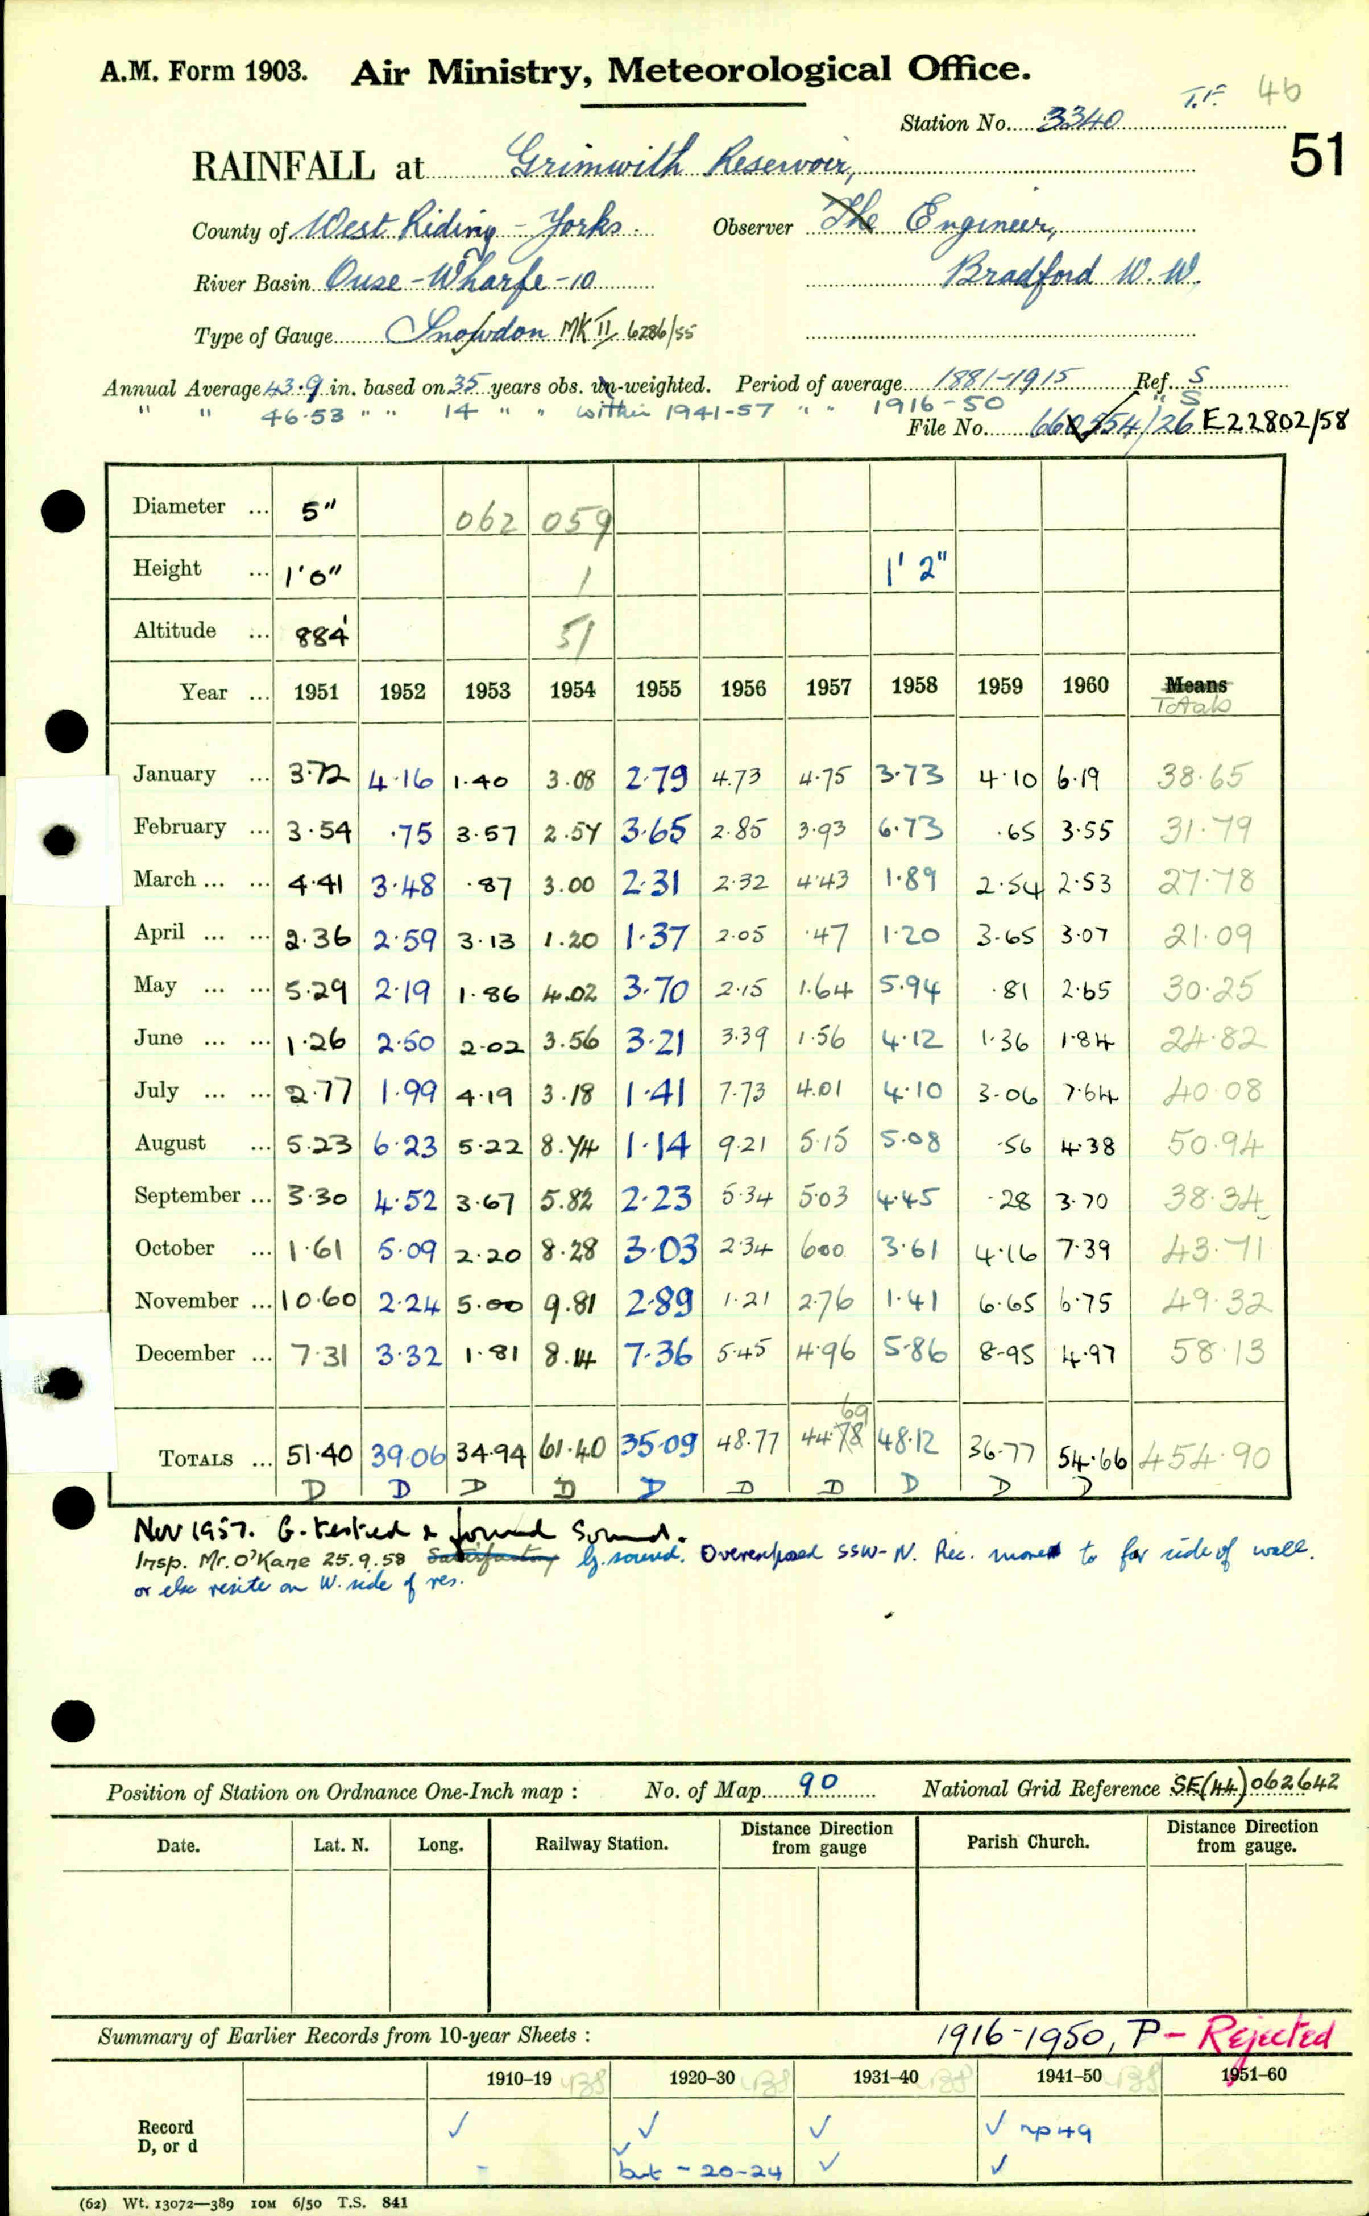 A.M. Form 1903. Air Ministry, Meteorological Office.
T.F. 46
Station No. 3340
51
RAINFALL at Grimwith Reservoir,
County of West Riding - Yorks. Observer The Engineer,
River Basin Ouse - Wharfe - 10 Bradford W. W.
Type of Gauge Snowdon MK II 6286/55
Annual Average 43.9 in. based on 35 years obs. un-weighted. Period of average 1881-1915 Ref. S
" " 46.53 " " 14 " " within 1941-57 " " 1916-50 " S
File No. 660554/26 E22802/58
Diameter ... 5" 062 059
Height ... 1'0" 1 1' 2"
Altitude ... 884' 51
Year ... 1951 1952 1953 1954 1955 1956 1957 1958 1959 1960 Means
Totals
January ... 3.72 4.16 1.40 3.08 2.79 4.73 4.75 3.73 4.10 6.19 38.65
February ... 3.54 .75 3.57 2.57 3.65 2.85 3.93 6.73 .65 3.55 31.79
March ... ... 4.41 3.48 .87 3.00 2.31 2.32 4.43 1.89 2.54 2.53 27.78
April ... ... 2.36 2.59 3.13 1.20 1.37 2.05 .47 1.20 3.65 3.07 21.09
May ... ... 5.29 2.19 1.86 4.02 3.70 2.15 1.64 5.94 .81 2.65 30.25
June ... ... 1.26 2.50 2.02 3.56 3.21 3.39 1.56 4.12 1.36 1.84 24.82
July ... ... 2.77 1.99 4.19 3.18 1.41 7.73 4.01 4.10 3.06 7.64 40.08
August ... 5.23 6.23 5.22 8.74 1.14 9.21 5.15 5.08 .56 4.38 50.94
September ... 3.30 4.52 3.67 5.82 2.23 5.34 5.03 4.45 .28 3.70 38.34
October ... 1.61 5.09 2.20 8.28 3.03 2.34 6.00 3.61 4.16 7.39 43.71
November ... 10.60 2.24 5.00 9.81 2.89 1.21 2.76 1.41 6.65 6.75 49.32
December ... 7.31 3.32 1.81 8.14 7.36 5.45 4.96 5.86 8.95 4.97 58.13
69
TOTALS ... 51.40 39.06 34.94 61.40 35.09 48.77 44.78 48.12 36.77 54.66 454.90
D D D D D D D D D D
Nov 1957. G. tested & found sound.
Insp. Mr. O'Kane 25.9.58 Satisfactory G. sound. Overexposed SSW-N. Rec. moved to far side of wall.
or else resite on W. side of res.
Position of Station on Ordnance One-Inch map : No. of Map 90 National Grid Reference SE(44)062642
Date. Lat. N. Long. Railway Station. Distance Direction from gauge Parish Church. Distance Direction from gauge.
Summary of Earlier Records from 10-year Sheets : 1916-1950, P - Rejected
1910–19 1920–30 1931–40 1941–50 1951–60
Record ✓ ✓ ✓ ✓ np 49
D, or d - ✓ but - 20-24 ✓ ✓
(62) Wt. 13072—389 10M 6/50 T.S. 841